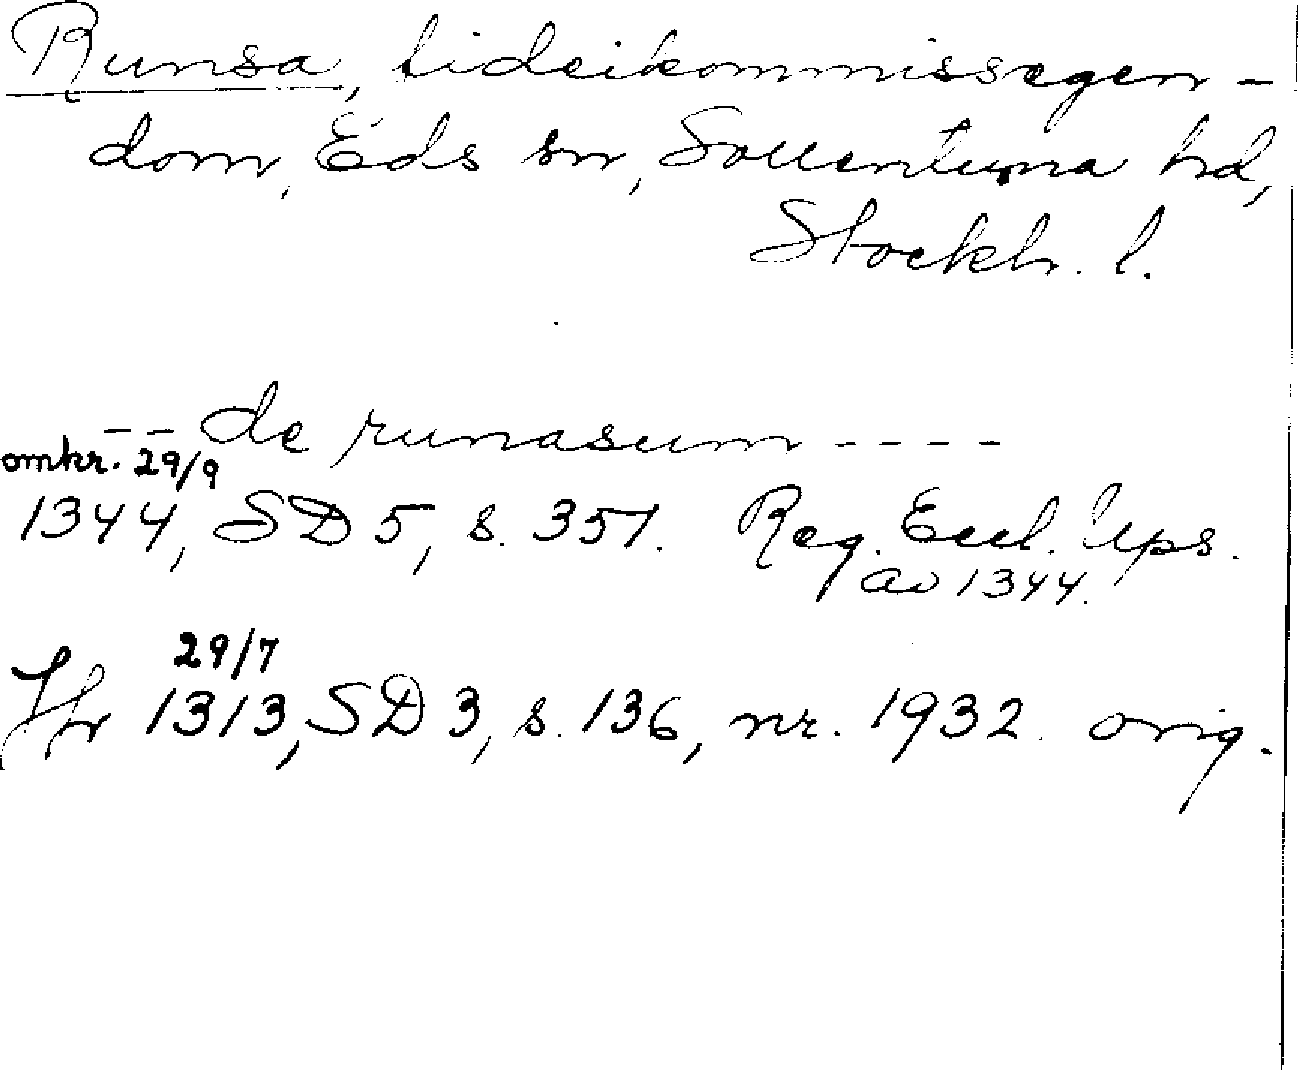 Runsa, fideikommissegen-
dom, Eds sn, Sollentuna hd,
Stockh. l.
-- de runasum ----
omkr. 29/9
1344, SD 5, s. 351. Reg. Eccl. Ups.
av 1344.
29/7
Jfr 1313, SD 3, s. 136, nr. 1932. orig.